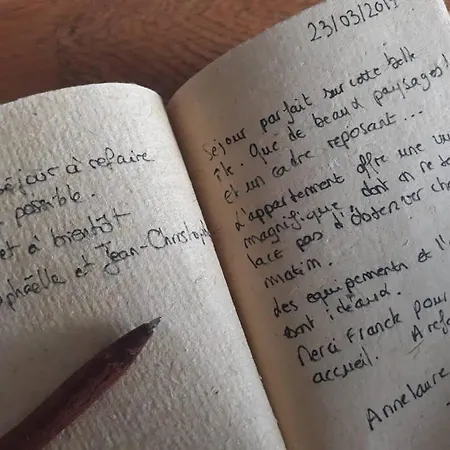 séjour à refaire
possible.
et à bientôt
Raphaëlle et Jean-Christophe
23/03/2019
Séjour parfait sur cette belle
île. Que de beaux paysages!
et un cadre reposant...
L'appartement offre une vue
magnifique dont on ne se
lace pas d'observer chaque
matin.
Les équipements et
sont idéaux.
Merci Franck pour
accueil. A
Annelaure